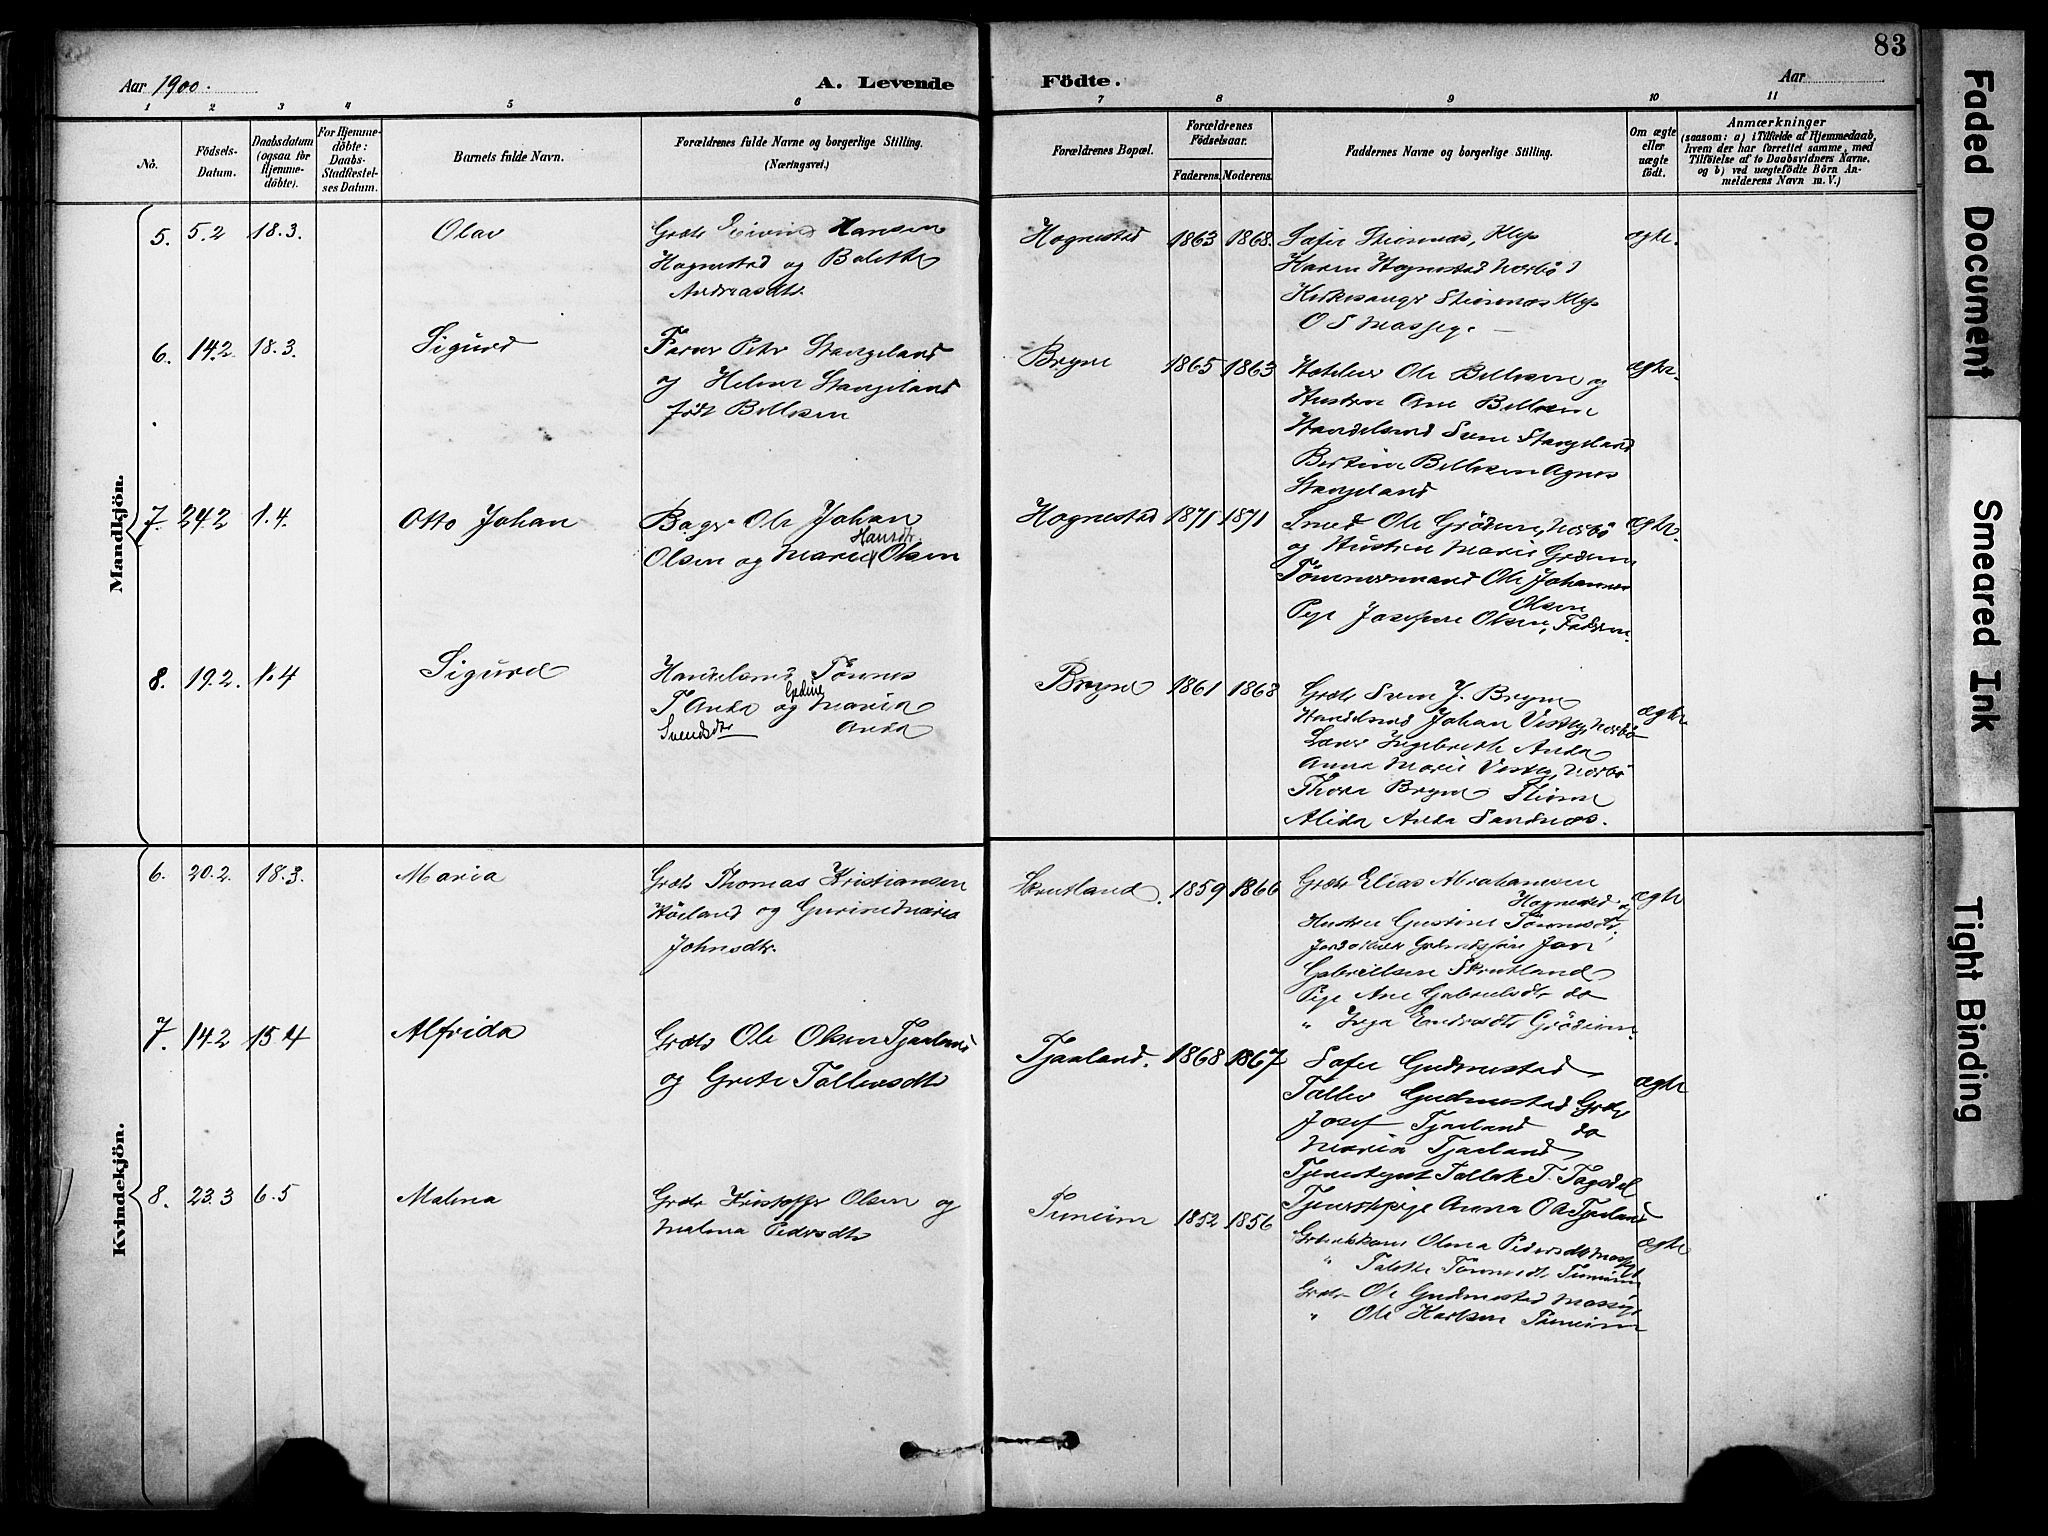 83
Aar 1900.
A. Levende Födte.
Aar
1 2 3 4 5 6 7 8 9 10 11
No.
Födsels-Datum.
Daabsdatum (ogsaa for Hjemmedöbte).
For Hjemmedöbte: Daabs-Stadfæstelses Datum.
Barnets fulde Navn.
Forældrenes fulde Navne og borgerlige Stilling.
(Næringsvei.)
Forældrenes Bopæl.
Forældrenes Födselsaar.
Faderens. Moderens.
Faddernes Navne og borgerlige Stilling.
Om ægte eller uægte födt.
Anmærkninger
(saasom: a) i Tilfælde af Hjemmedaab, hvem der har forrettet samme, med Tilföielse af to Daabsvidners Navne. og b) ved uægtefödte Börn Anmelderens Navn m. V.)
Mandkjön.
5. 5.2 18.3. Olav
Hansen
Hognestad og Bolette
Andreasdtr.
Hognestad 1863 1868.
Karen Hognestad Norbö
Kirkesanger Klep
O S Massige
ægte.
6. 14.2 18.3. Sigurd
Farver Peter Stangeland
og Helene Stangeland
født Bellesen
Bryne 1865 1863
Ole Bellesen og
Hustru Ane Bellesen
Handelsmd Sven Stangeland
Bertine Bellesen Agnes
Stangeland
ægte.
7. 24.2 1.4. Otto Johan
Bager Ole Johan
Olsen og Marie Hansdtr. Olsen
Hognestad 1871 1871
Smed Ole Grödem, Norbö
og Hustru Marie Grödem
Tömmermand Ole Johannes
Olsen
Pige Josefine Olsen, Faderen.
ægte.
8. 19.2. 1.4 Sigurd
Handelsmd Tönnes
T Anda og Gurine Maria
Svendsdtr Anda
Bryne 1861 1868
Grdbr Sven J. Bryne
Handelsmd Johan Vestly, Norbö
Lærer Ingebreth Anda
Anna Marie Vestly, Norbö
Thora Bryne Thime
Alida Anda Sandnæs.
ægte
Kvindekjön.
6. 20.2. 18.3. Maria
Grdbr Thomas Kristiansen
Höiland og Gurine Maria
Johnsdtr.
Skrutland. 1859 1866
Grdbr Elias Abrahamsen
Hognestad og
Hustru Gustine Tönnesdtr,
Jan
Gabrielsen Skrutland
Pige Ane Gabrielsdtr do
" Inga Endresdtr Grödeim.
ægte
7. 14.2 15.4 Alfrida
Grdbr Ole Olsen Tjaaland
og Grete Tollevsdtr
Tjaaland. 1868 1867
Sofie Gudmestad
Tollev Gudmestad Grdbr
Josef Tjaaland do
Maria Tjaaland
Tjenestegut Tollak T.
Tjenestepige Anna O Tjaaland
ægte
8. 23.3 6.5 Malena
Grdbr Kristoffer Olsen og
Malena Pedersdtr
Tuneim 1852 1856
Olena Pedersdtr
" Tönnesdtr Tuneim
Grdbr Ole Gudmestad Massige
" Ole Tuneim
ægte
Faded Document
Smeared Ink
Tight Binding